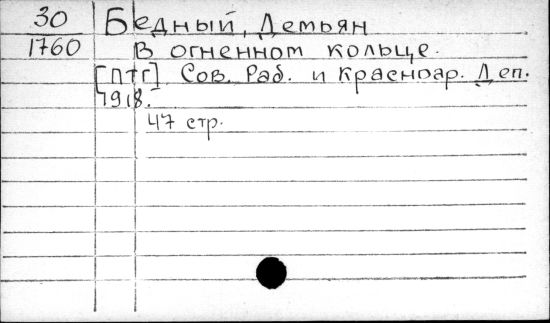 30 Бедный, Демьян
1760 В огненном кольце.
[Птг] Сов. Раб. и Красноар. Деп.
1918.
47 стр.